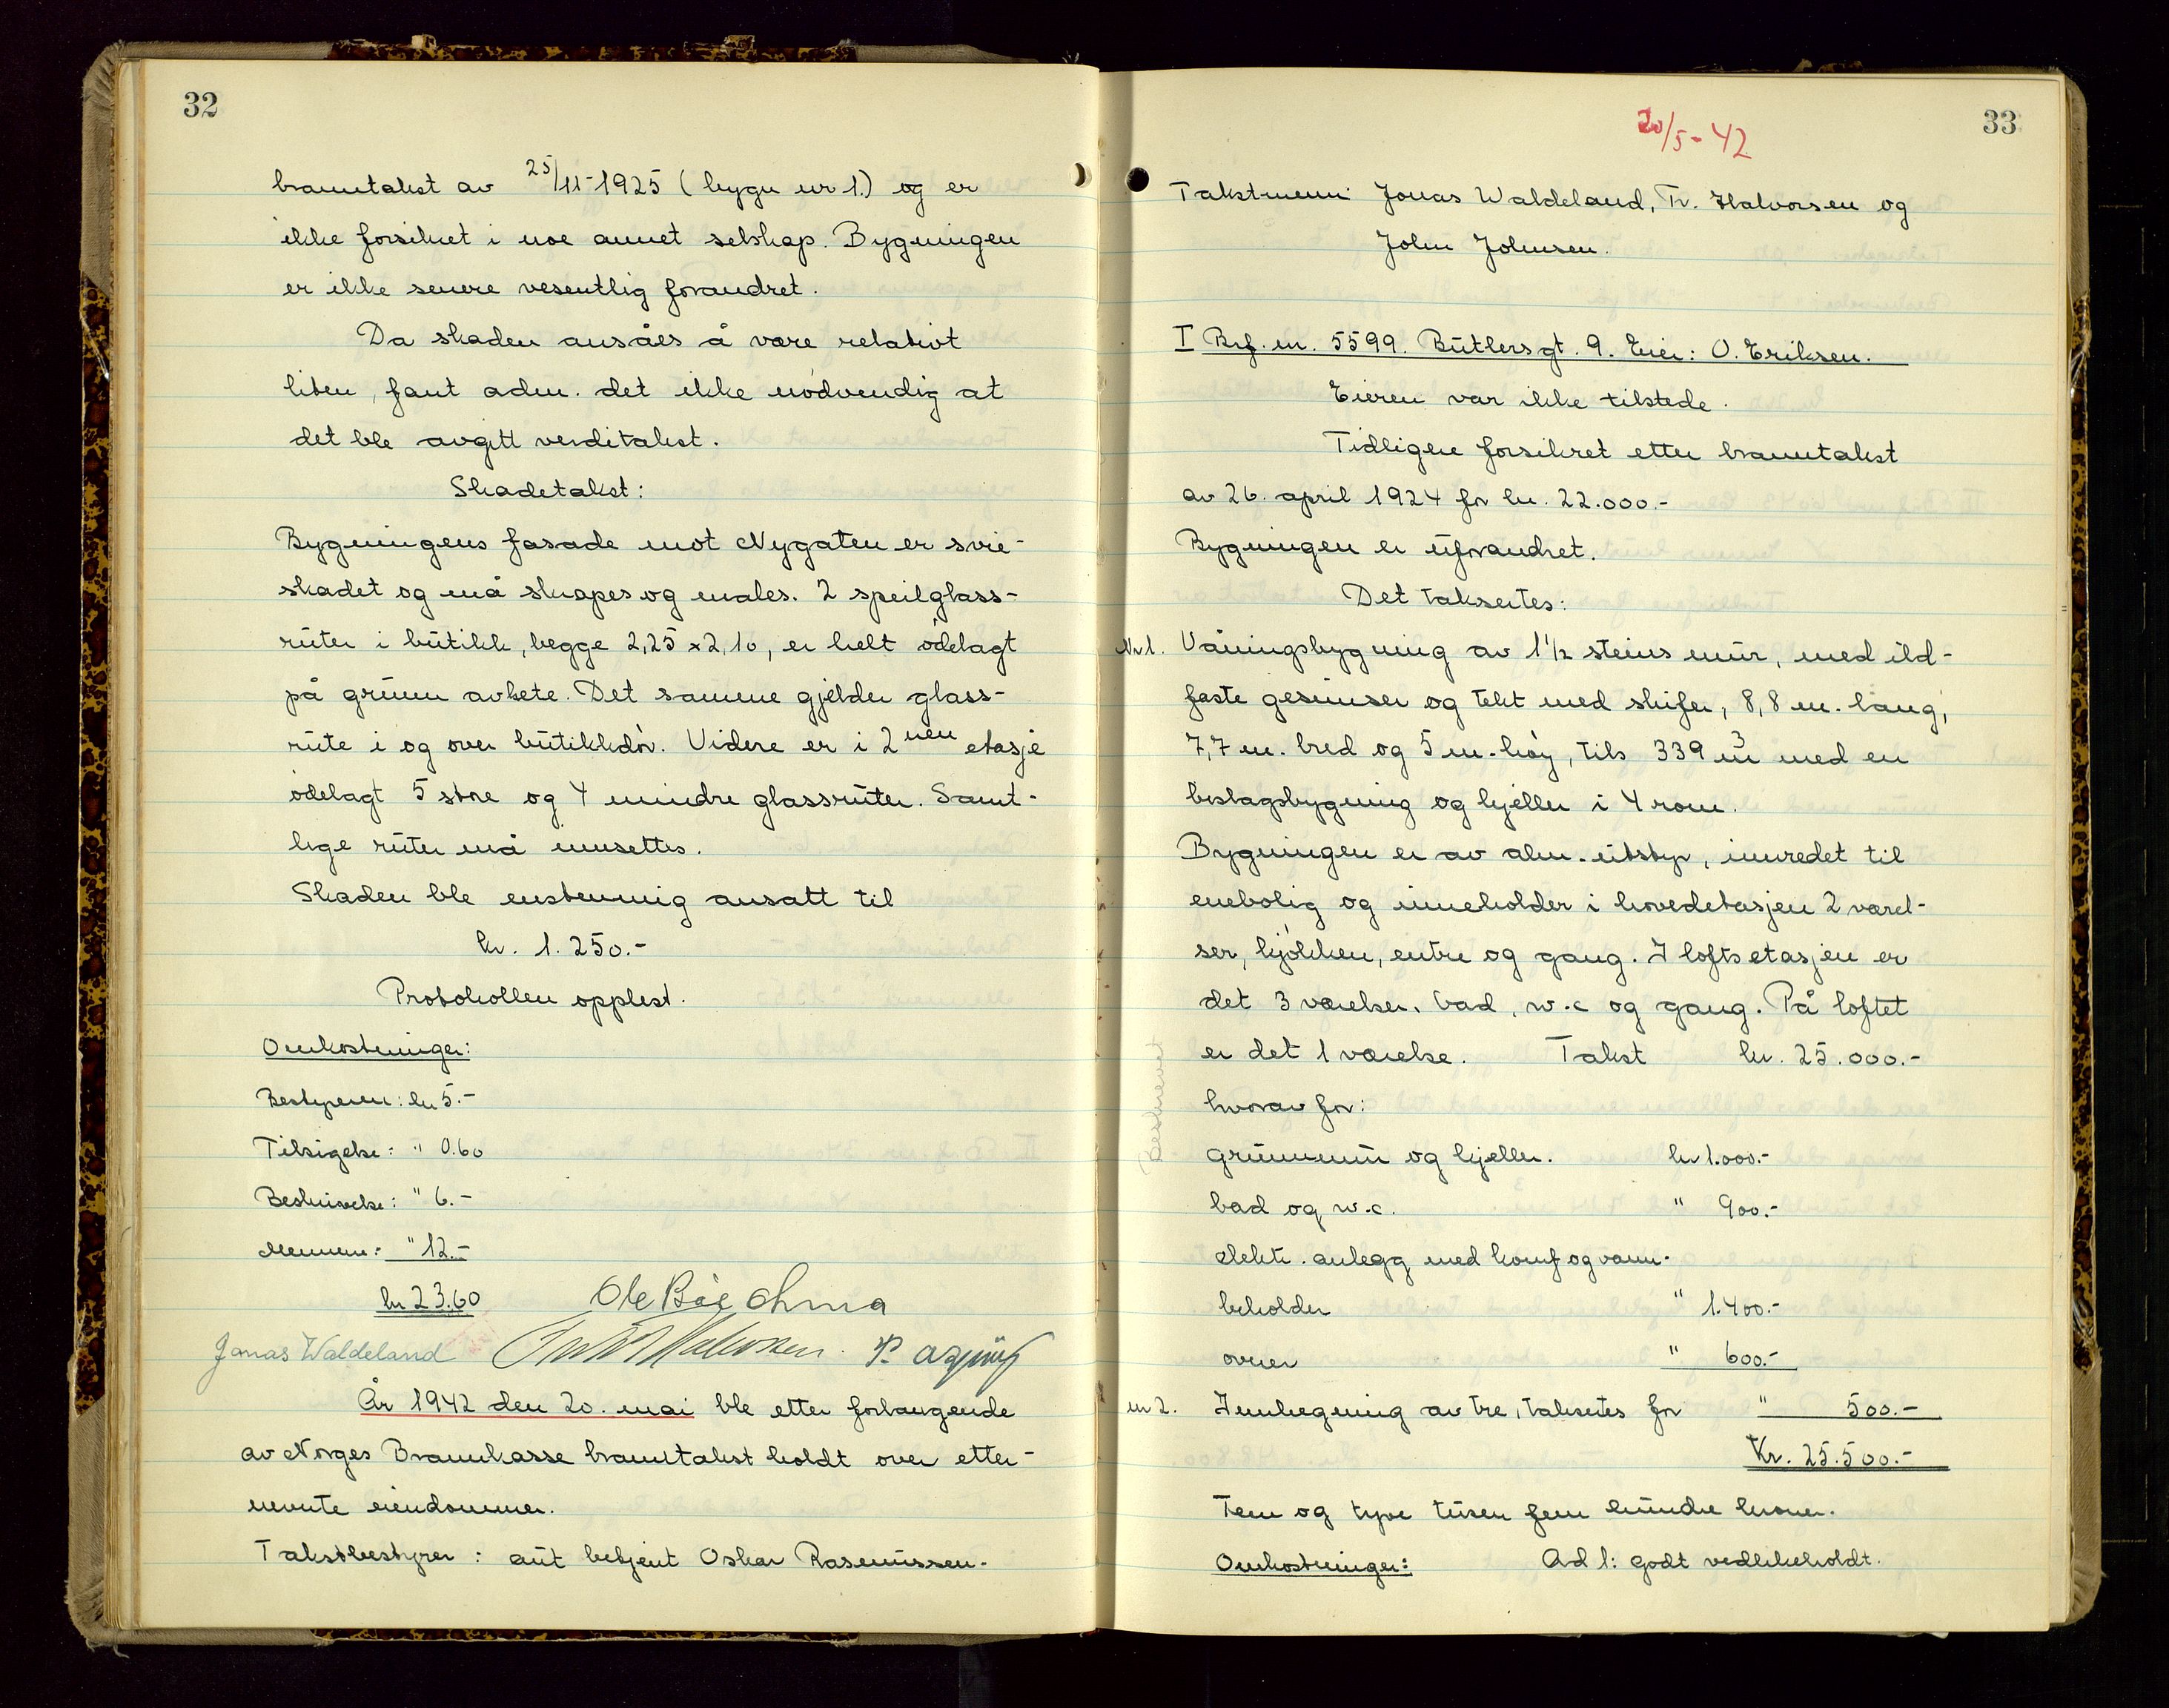 32
branntakst av 25/11-1925 (bygn nr 1.) og er
ikke forsikret i noe annet selskap. Bygningen
er ikke senere vesentlig forandret.
Da skaden ansåes å være relativt
liten, fant adm. det ikke nødvendig at
det ble avgitt verditakst.
Skadetakst:
Bygningens fasade mot Nygaten er svie-
skadet og må skrapes og males. 2 speilglass-
ruter i butikk, begge 2,25 x 2,10, er helt ødelagt
på grunn av hete. Det samme gjelder glass-
rute i og over butikkdør. Videre er i 2nen etasje
ødelagt 5 store og 4 mindre glassruter. Samt-
lige ruter må innsettes.
Skaden ble enstemmig ansatt til
kr. 1.250.-
Protokollen opplest.
Omkostninger:
Bestyreren: kr 5.-
Tilsigelse: " 0.60
Beskrivelse: " 6.-
Mennene: " 12.-
kr 23.60
Ole Bøe
Jonas Waldeland Halvorsen.
År 1942 den 20. mai ble etter forlangende
av Norges Brannkasse branntakst holdt over etter-
nevnte eiendommer.
Takstbestyrer: aut betjent Oskar Rasmussen.
33
20/5-42
Takstmenn: Jonas Waldeland, Tr. Halvorsen og
John Johnsen.
I Brf. nr. 5599. Butlersgt. 9. Eier: O. Eriksen.
Eieren var ikke tilstede.
Tidligere forsikret etter branntakst
av 26. april 1924 for kr. 22.000.-
Bygningen er uforandret.
Det takseres:
Nr 1. Våningsbygning av 1 1/2 steins mur, med ild-
faste gesimser og tekt med skifer, 8,8 m. lang,
7,7 m. bred og 5 m. høy, tils 339 m3 med en
bislagsbygning og kjeller i 4 rom.
Bygningen er av alm. utstyr, innredet til
enebolig og inneholder i hovedetasjen 2 værel-
ser, kjøkken, entre og gang. I loftsetasjen er
det 3 værelser, bad, w.c og gang. På loftet
er det 1 værelse. Takst kr. 25.000.-
Beskrevet
hvorav for:
grunnmur og kjeller. kr 1.000.-
bad og w.c. " 900.-
elektr. anlegg med komf og vann-
beholder " 1.400.-
ovner " 600.-
nr 2. Innhegning av tre, takseres for " 500.-
Kr. 25.500.-
Fem og tyve tusen fem hundre kroner.
Omkostninger: Ad 1: godt vedlikeholdt.